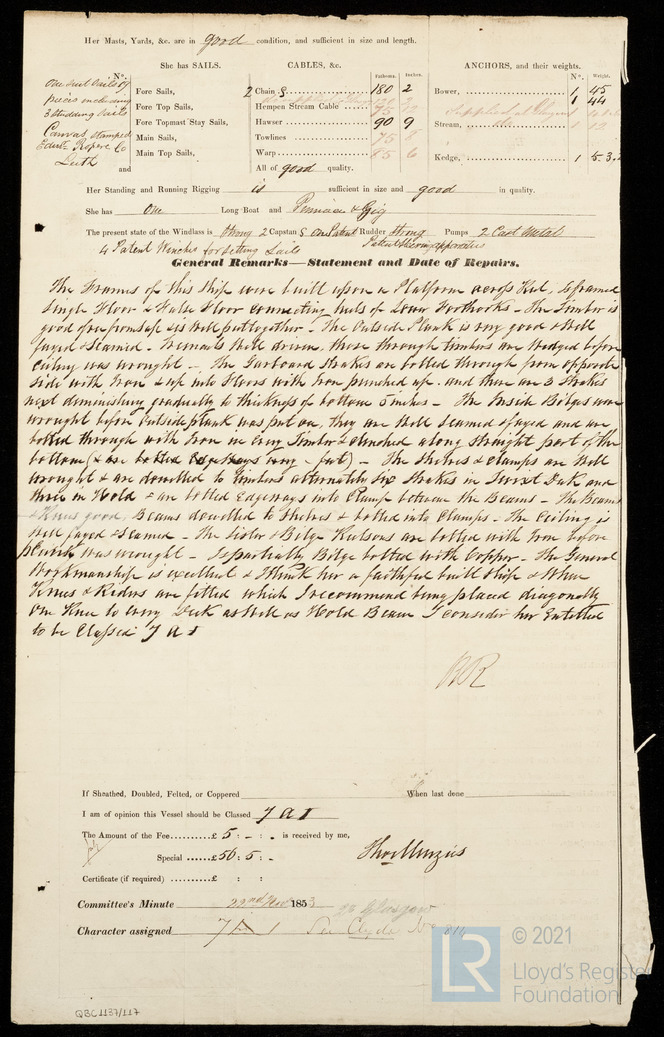 Her Masts, Yards, &c. are in good condition, and sufficient in size and length.
She has SAILS.
CABLES, &c.
ANCHORS, and their weights.
N°.
Fathoms.
Inches.
N°.
Weight.
One suit Sails of
pieces including
Studding Sails
Canvas stamped
Edinr. Ropery Co
Leith
and
Fore Sails,
Fore Top Sails,
Fore Topmast Stay Sails,
Main Sails,
Main Top Sails,
2 Chain 180 2
Hempen Stream Cable
Hawser 90 9
Towlines 75
Warp 85 6
All of good quality.
Bower, 1 45
1 44
Supplied at Glasgow
Stream, 1 12
Kedge, 1 5.3.
Her Standing and Running Rigging is sufficient in size and good in quality.
She has One Long Boat and Pinnace & Gig
The present state of the Windlass is Strong 2 Capstan & one Patent Rudder Strong Pumps 2 Cast Metal
4 Patent Winches for setting Sails Patent Steering apparatus
General Remarks—Statement and Date of Repairs.
The Frames of this Ship were built upon a Platform across Keel, & framed
Single Floor & False Floor connecting heels of Lower Foothooks - The Timber is
good free from sap & is well put together - The Outside Plank is very good & Well
fayed & Seamed - Treenails Well driven, those through timbers are Wedged before
Ceiling was wrought - The Garboard Strakes are bolted through from opposite
side with Iron & up into Floors with Iron punched up - and there are 3 Strakes
next diminishing gradually to thickness of bottom 5 inches - The Inside Bilges were
wrought before Outside plank was put on, they are Well Seamed & fayed and are
bolted through with Iron in every Timber & clinched along straight part of the
bottom (& are bolted Edgeways - but) - The Shelves & Clamps are Well
wrought & are dowelled to timbers alternately Six Strakes in Twixt Deck and
three in Hold & are bolted Edgeways into Clamp between the Beams - The Beams
& Knees good, Beams dowelled to Shelves & bolted into Clamps - The Ceiling is
Well fayed & Seamed - The Sister & Bilge Keelsons are bolted with Iron before
plank was wrought - Is partially Bilge bolted with Copper - The General
Workmanship is excellent & I think her a faithful built Ship & When
Knees & Riders are fitted which I recommend being placed diagonally
One Knee to every Deck as Well as Hold Beam I consider her Entitled
to be Classed 7 A 1
If Sheathed, Doubled, Felted, or Coppered When last done
I am of opinion this Vessel should be Classed 7 A 1
The Amount of the Fee..........£ 5 : - : - is received by me,
Special ......£50 : 5 : -
Certificate (if required) ......£ : :
Thos Menzies
Committee's Minute 22nd Novr 1853
Glasgow
Character assigned 7 A 1 See Clyde No 816
LR
© 2021
Lloyd's Register
Foundation
QBC1137/117